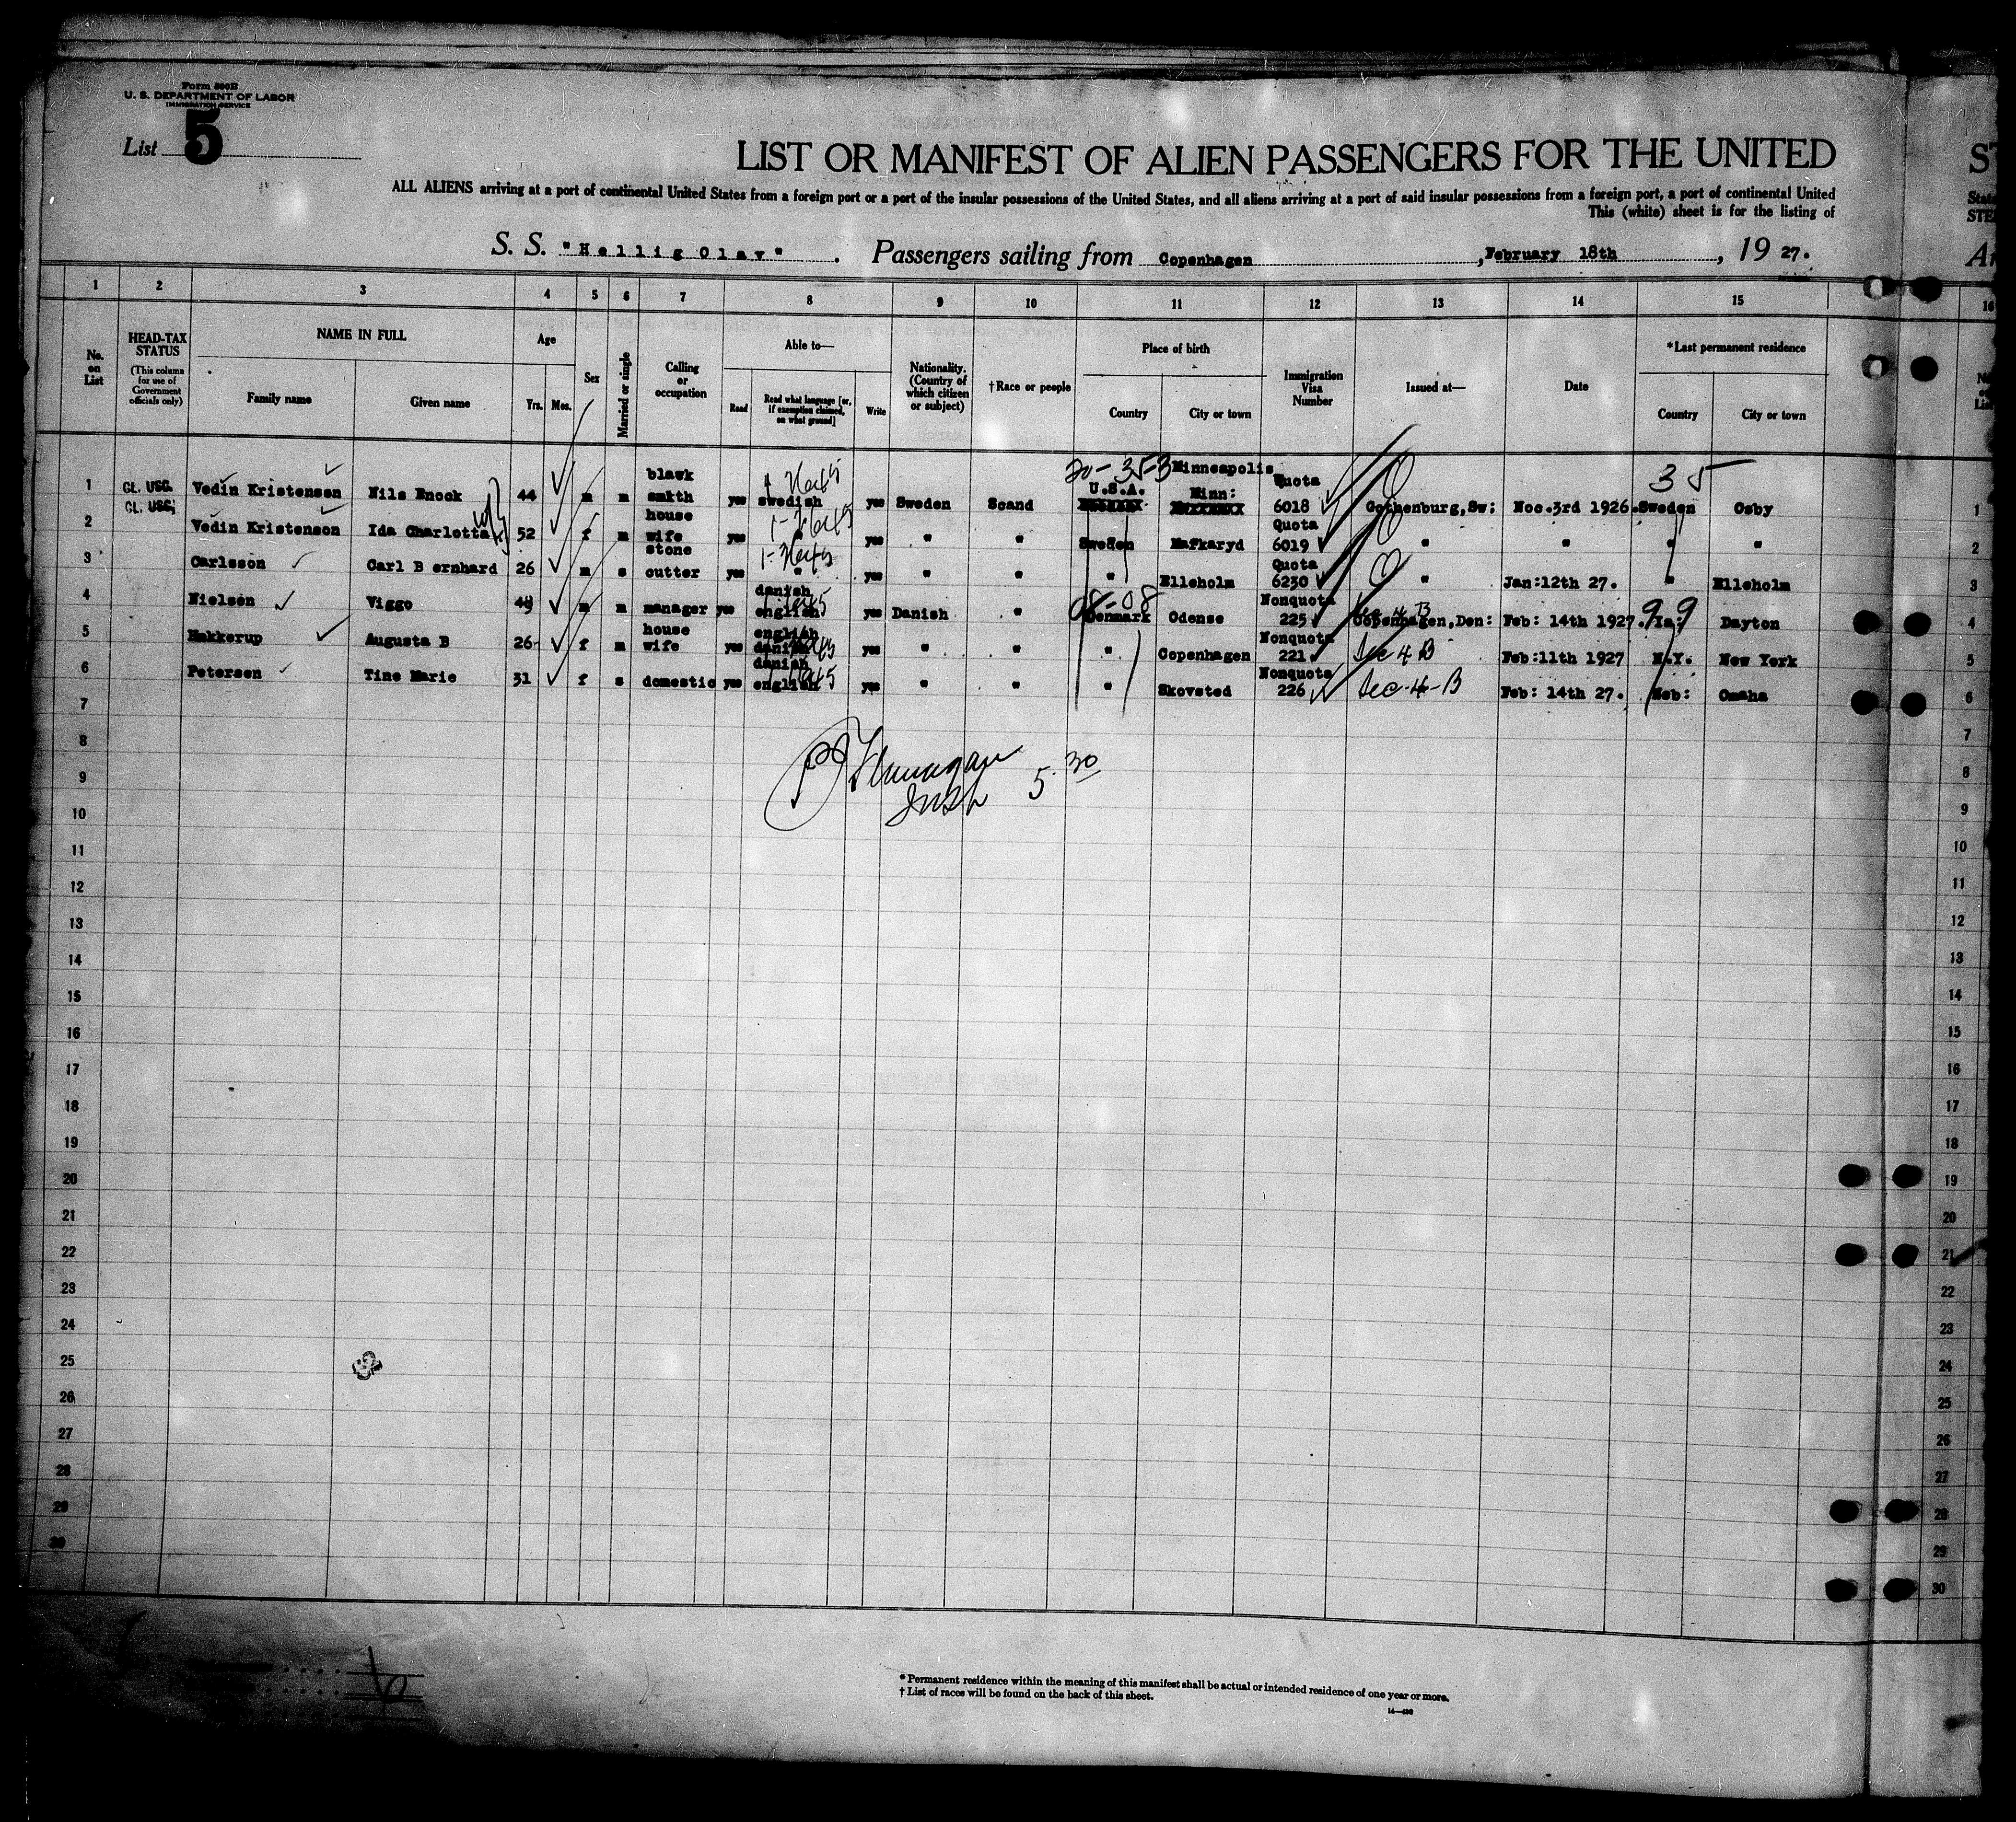 Form 500B
U. S. DEPARTMENT OF LABOR
IMMIGRATION SERVICE
List 5
LIST OR MANIFEST OF ALIEN PASSENGERS FOR THE UNITED
ALL ALIENS arriving at a port of continental United States from a foreign port or a port of the insular possessions of the United States, and all aliens arriving at a port of said insular possessions from a foreign port, a port of continental United
This (white) sheet is for the listing of
S. S. "Hellig Olav". Passengers sailing from Copenhagen, February 18th, 19 27.
1 2 3 4 5 6 7 8 9 10 11 12 13 14 15 16
No. on List
HEAD-TAX STATUS
(This column for use of Government officials only)
NAME IN FULL
Family name Given name
Age
Yrs. Mos.
Sex
Married or single
Calling or occupation
Able to—
Read
Read what language [or, if exemption claimed, on what ground]
Write
Nationality. (Country of which citizen or subject)
†Race or people
Place of birth
Country City or town
Immigration Visa Number
Issued at—
Date
*Last permanent residence
Country City or town
20-353 35
1 CL. USC. Vedin Kristensen Nils Enock 44 m m blawk smkth yes swedish yes Sweden Scand U.S.A. Minneapolis Minn: Quota 6018 Gothenburg,Sw: Noc.3rd 1926. Sweden Osby 1
CL. USC;
2 Vedin Kristenson Ida Charlotta 52 f m house wife yes " yes " " Sweden Mafkaryd Quota 6019 " " " " 2
3 Carlsson Carl B ernhard 26 m s stone cutter yes " yes " " " Elleholm Quota 6230 " Jan:12th 27. " Elleholm 3
08-08 99
4 Nielsen Viggo 49 m m manager yes danish english yes Danish " Denmark Odense Nonquota 225 Copenhagen,Den: Feb: 14th 1927. Ia: Dayton 4
5 Hakkerup Augusta B 26 f m house wife yes english danish yes " " " Copenhagen Nonquota 221 Sec 4 B Feb:11th 1927 N.Y. New York 5
6 Petersen Tine Marie 31 f s domestic yes danish english yes " " " Skovsted Nonquota 226 Sec-4-B Feb: 14th 27. Neb: Omaha 6
7 7
8 8
PJ Flanagan
Insp 5.30
9 9
10 10
11 11
12 12
13 13
14 14
15 15
16 16
17 17
18 18
19 19
20 20
21 21
22 22
23 23
24 24
25 25
26 26
27 27
28 28
29 29
30 30
* Permanent residence within the meaning of this manifest shall be actual or intended residence of one year or more.
† List of races will be found on the back of this sheet.